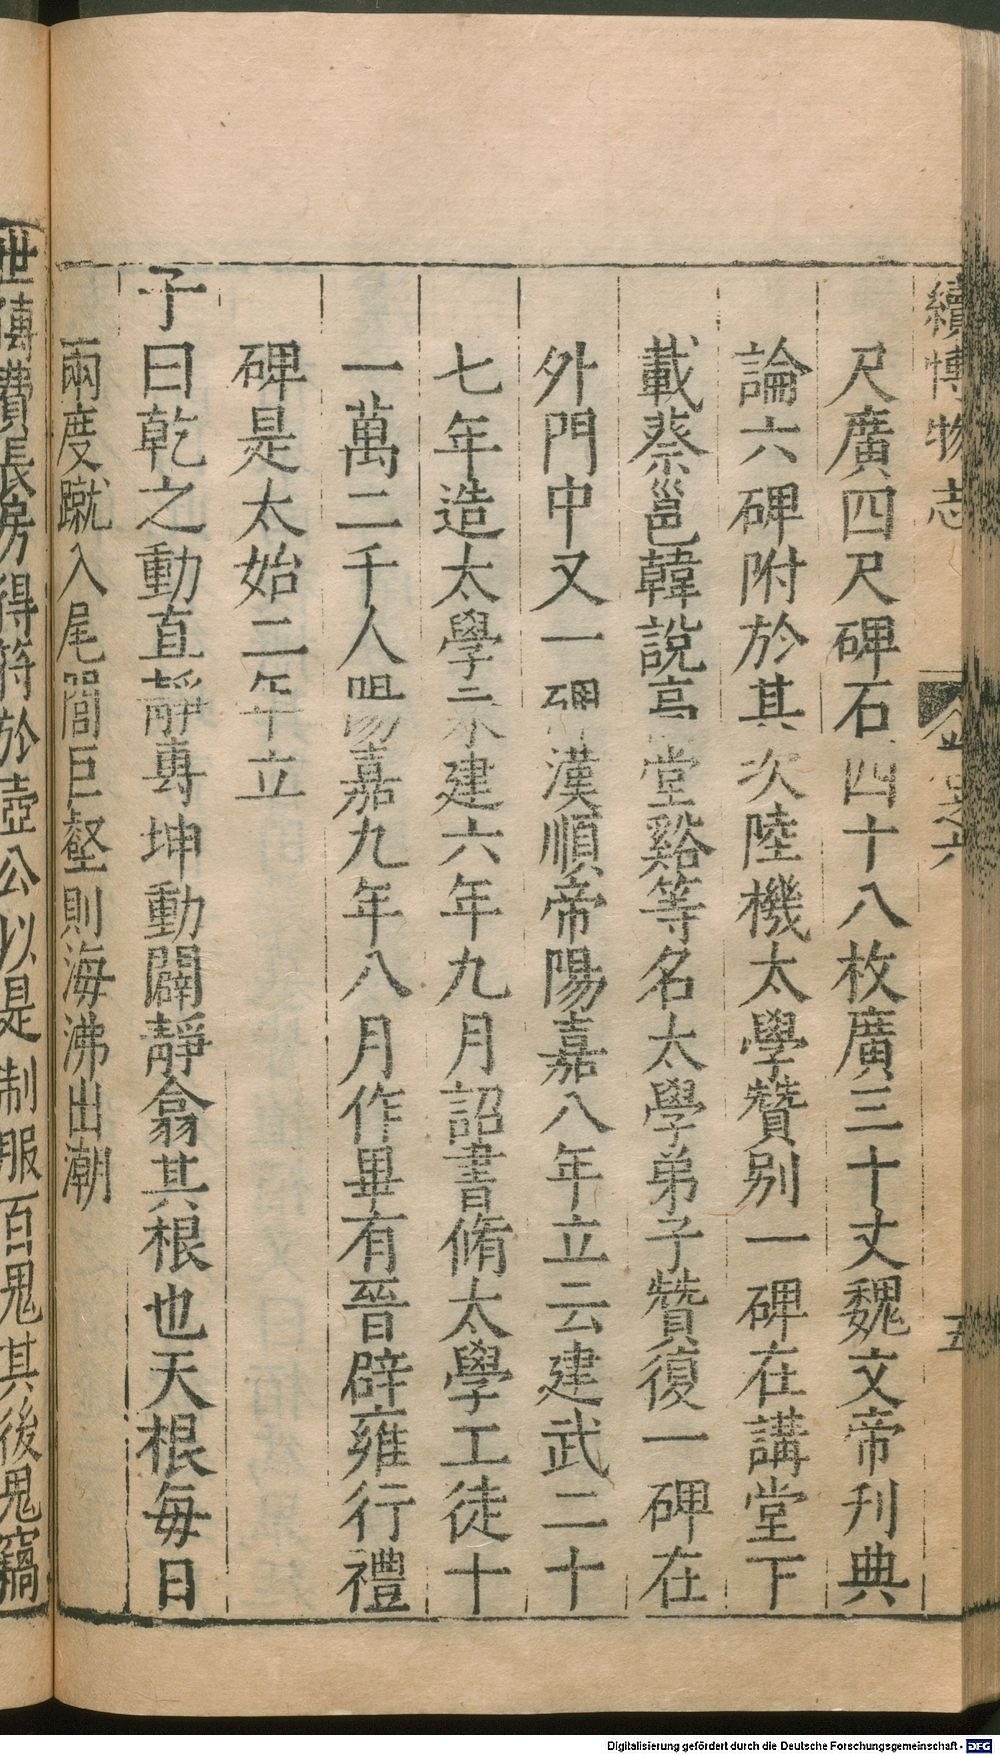 續博物志 卷之六 五
尺廣四尺碑石四十八枚廣三十丈魏文帝刋典
論六碑附於其次陸機太學贊别一碑在講堂下
載蔡邕韓說高堂谿等名太學弟子贊復一碑在
外門中又一碑漢順帝陽嘉八年立云建武二十
七年造太學永建六年九月詔書脩太學工徒十
一萬二千人陽嘉九年八月作畢有晉辟雍行禮
碑是太始二年立
子曰乾之動直靜專坤動闢靜翕其根也天根每日
兩度蹴入尾閭巨壑則海沸出潮
世傳費長房得符於壺公以是制服百鬼其後鬼竊
Digitalisierung gefördert durch die Deutsche Forschungsgemeinschaft - DFG